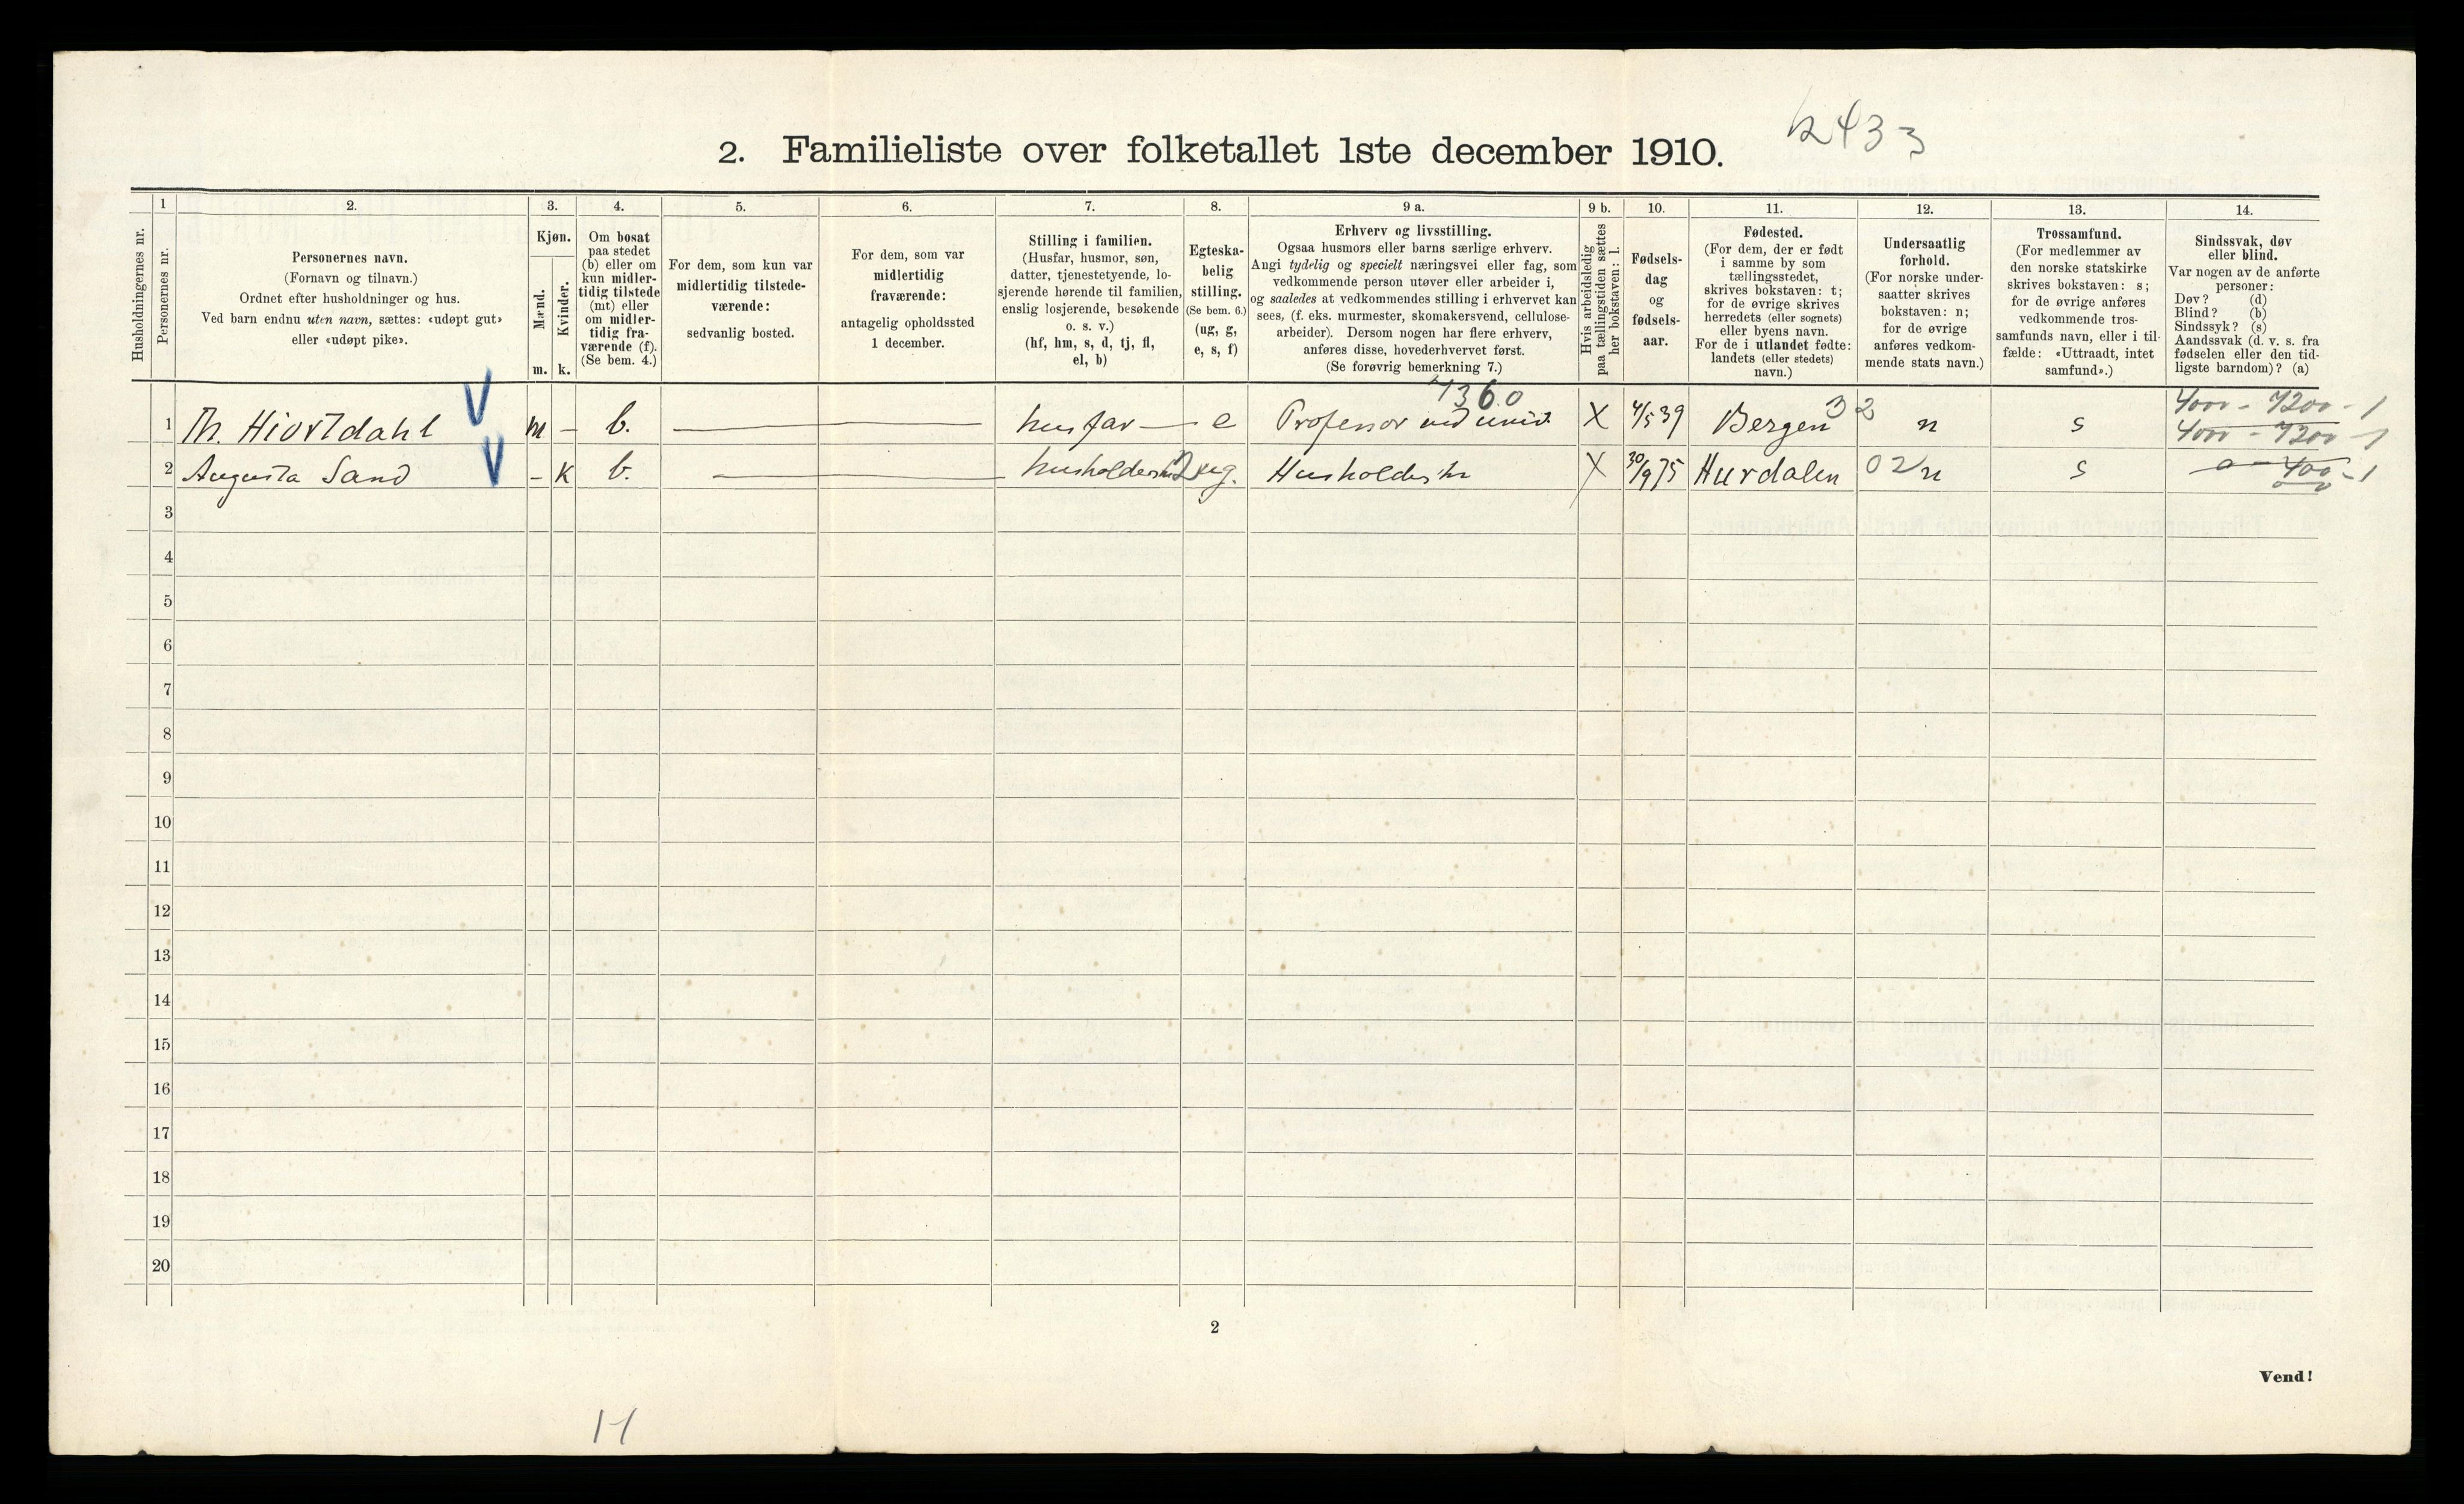 2. Familieliste over folketallet 1ste december 1910.
2433
Husholdningernes nr.
1
Personernes nr.
2.
Personernes navn.
(Fornavn og tilnavn.)
Ordnet efter husholdninger og hus.
Ved barn endnu uten navn, sættes: «udøpt gut»
eller «udøpt pike».
3.
Kjøn.
Mænd.
Kvinder.
m. k.
4.
Om bosat
paa stedet
(b) eller om
kun midler-
tidig tilstede
(mt) eller
om midler-
tidig fra-
værende (f).
(Se bem. 4.)
5.
For dem, som kun var
midlertidig tilstede-
værende:
sedvanlig bosted.
6.
For dem, som var
midlertidig
fraværende:
antagelig opholdssted
1 december.
7.
Stilling i familien.
(Husfar, husmor, søn,
datter, tjenestetyende, lo-
sjerende hørende til familien,
enslig losjerende, besøkende
o. s. v.)
(hf, hm, s, d, tj, fl,
el, b)
8.
Egteska-
belig
stilling.
(Se bem. 6.)
(ug, g,
e, s, f)
9 a.
Erhverv og livsstilling.
Ogsaa husmors eller barns særlige erhverv.
Angi tydelig og specielt næringsvei eller fag, som
vedkommende person utøver eller arbeider i,
og saaledes at vedkommendes stilling i erhvervet kan
sees, (f. eks. murmester, skomakersvend, cellulose-
arbeider). Dersom nogen har flere erhverv,
anføres disse, hovederhvervet først.
(Se forøvrig bemerkning 7.)
9 b.
Hvis arbeidsledig
paa tællingstiden sættes
her bokstaven: l.
10.
Fødsels-
dag
og
fødsels-
aar.
11.
Fødested.
(For dem, der er født
i samme by som
tællingsstedet,
skrives bokstaven: t;
for de øvrige skrives
herredets (eller sognets)
eller byens navn.
For de i utlandet fødte:
landets (eller stedets)
navn.)
12.
Undersaatlig
forhold.
(For norske under-
saatter skrives
bokstaven: n;
for de øvrige
anføres vedkom-
mende stats navn.)
13.
Trossamfund.
(For medlemmer av
den norske statskirke
skrives bokstaven: s;
for de øvrige anføres
vedkommende tros-
samfunds navn, eller i til-
fælde: «Uttraadt, intet
samfund».)
14.
Sindssvak, døv
eller blind.
Var nogen av de anførte
personer:
Døv? (d)
Blind? (b)
Sindssyk? (s)
Aandssvak (d. v. s. fra
fødselen eller den tid-
ligste barndom)? (a)
7360 32 4000 - 7200 - 1
1 Th. Hiortdahl V m – b. husfar e Professor ved univ. X 4/5 39 Bergen n s 4000 - 7200 - 1
2 Augusta Sand V – K b. ug. Husholderske X 30/9 75 Hurdalen 02 n s 0 - 400 - 1
3
4
5
6
7
8
9
10
11
12
13
14
15
16
17
18
19
20
2
Vend!